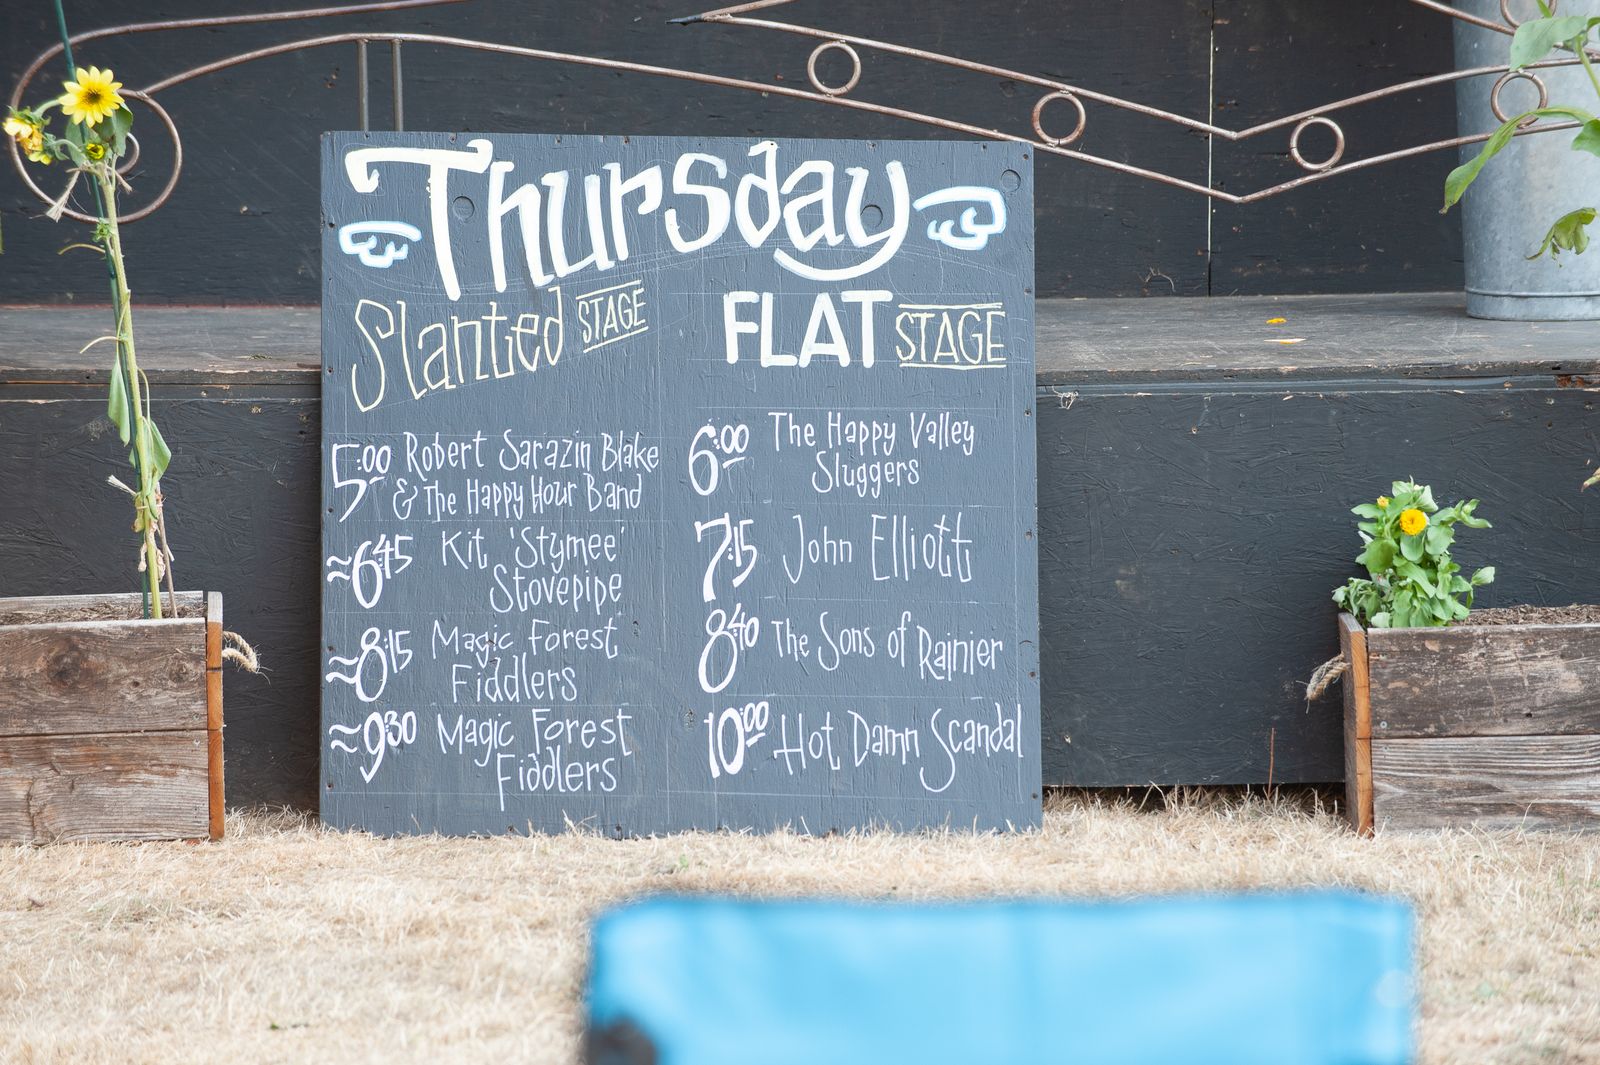 Thursday
Slanted STAGE
5:00 Robert Sarazin Blake
& The Happy Hour Band
≈6:45 Kit 'Stymee'
Stovepipe
≈8:15 Magic Forest
Fiddlers
≈9:30 Magic Forest
Fiddlers
FLAT STAGE
6:00 The Happy Valley
Sluggers
7:15 John Elliott
8:40 The Sons of Rainier
10:00 Hot Damn Scandal